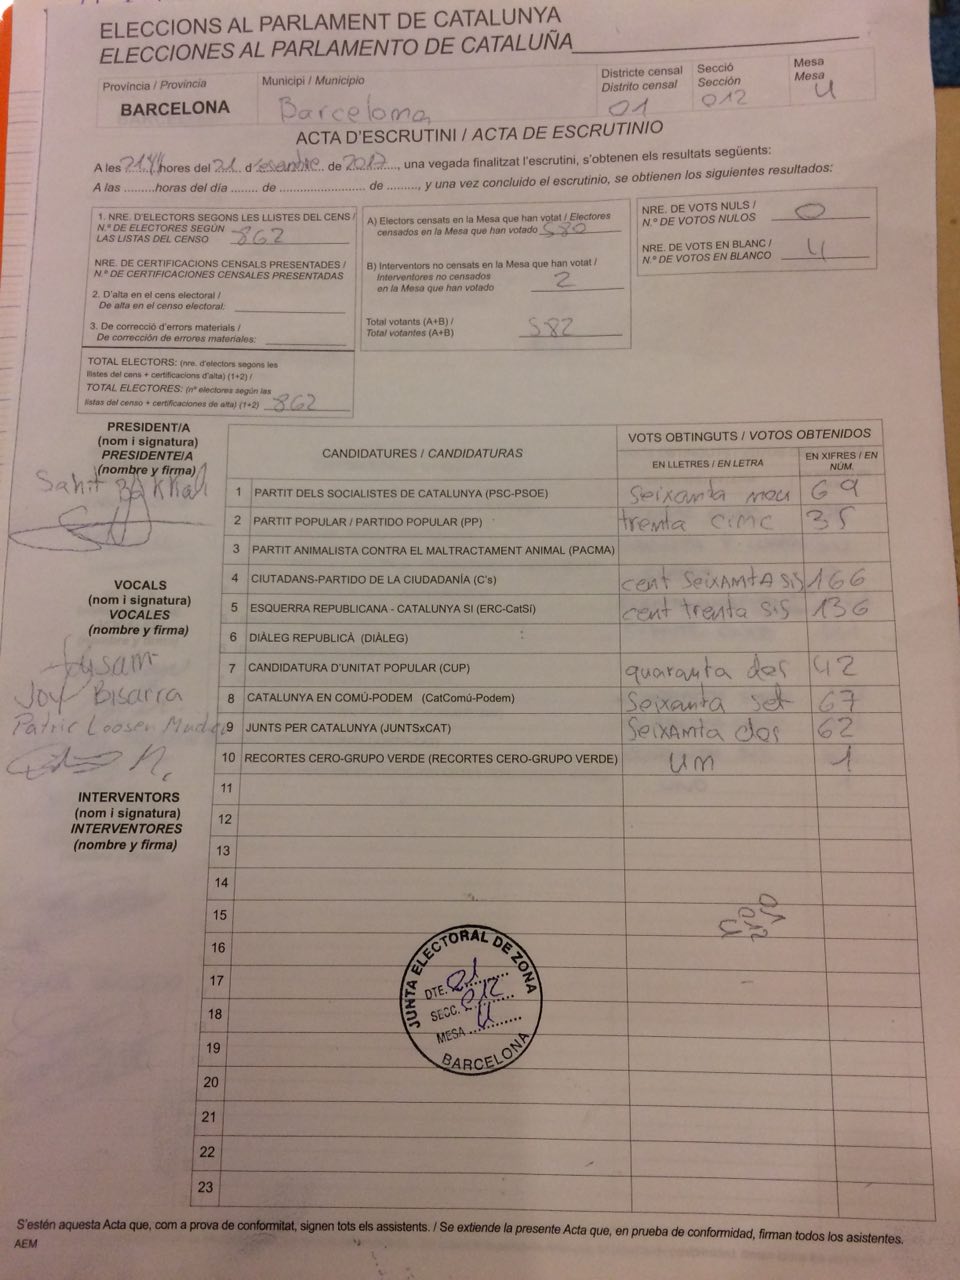 ELECCIONS AL PARLAMENT DE CATALUNYA
ELECCIONES AL PARLAMENTO DE CATALUÑA
Província / Provincia
BARCELONA
Municipi / Municipio
Barcelona
Districte censal
Distrito censal
01
Secció
Sección
012
Mesa
Mesa
U
ACTA D'ESCRUTINI / ACTA DE ESCRUTINIO
A les 21:44 hores del 21 d'desembre de 2017, una vegada finalitzat l'escrutini, s'obtenen els resultats següents:
A las .........horas del día ....... de ........................ de ........., y una vez concluido el escrutinio, se obtienen los siguientes resultados:
1. NRE. D'ELECTORS SEGONS LES LLISTES DEL CENS /
N.º DE ELECTORES SEGÚN
LAS LISTAS DEL CENSO 862
NRE. DE CERTIFICACIONS CENSALS PRESENTADES /
N.º DE CERTIFICACIONES CENSALES PRESENTADAS
2. D'alta en el cens electoral /
De alta en el censo electoral:
3. De correcció d'errors materials /
De corrección de errores materiales:
TOTAL ELECTORS: (nre. d'electors segons les
llistes del cens + certificacions d'alta) (1+2) /
TOTAL ELECTORES: (nº electores según las
listas del censo + certificaciones de alta) (1+2) 862
A) Electors censats en la Mesa que han votat / Electores
censados en la Mesa que han votado 580
B) Interventors no censats en la Mesa que han votat /
Interventores no censados
en la Mesa que han votado 2
Total votants (A+B) /
Total votantes (A+B) 582
NRE. DE VOTS NULS /
N.º DE VOTOS NULOS 0
NRE. DE VOTS EN BLANC /
N.º DE VOTOS EN BLANCO 4
PRESIDENT/A
(nom i signatura)
PRESIDENTE/A
(nombre y firma)
VOCALS
(nom i signatura)
VOCALES
(nombre y firma)
Joy Bisarra
Patric Loosen
INTERVENTORS
(nom i signatura)
INTERVENTORES
(nombre y firma)
CANDIDATURES / CANDIDATURAS
VOTS OBTINGUTS / VOTOS OBTENIDOS
EN LLETRES / EN LETRA
EN XIFRES / EN NÚM.
1 PARTIT DELS SOCIALISTES DE CATALUNYA (PSC-PSOE) seixanta nou 69
2 PARTIT POPULAR / PARTIDO POPULAR (PP) trenta cinc 35
3 PARTIT ANIMALISTA CONTRA EL MALTRACTAMENT ANIMAL (PACMA)
4 CIUTADANS-PARTIDO DE LA CIUDADANÍA (C's) cent SeixAntA sis 166
5 ESQUERRA REPUBLICANA - CATALUNYA SI (ERC-CatSí) cent trenta sis 136
6 DIÀLEG REPUBLICÀ (DIÀLEG)
7 CANDIDATURA D'UNITAT POPULAR (CUP) quaranta dos 42
8 CATALUNYA EN COMÚ-PODEM (CatComú-Podem) Seixanta set 67
9 JUNTS PER CATALUNYA (JUNTSxCAT) SeixAnta dos 62
10 RECORTES CERO-GRUPO VERDE (RECORTES CERO-GRUPO VERDE) un 1
11
12
13
14
15
16
17
18
19
20
21
22
23
01
012
U
JUNTA ELECTORAL DE ZONA
DTE. 01
SECC. 012
MESA U
BARCELONA
S'estén aquesta Acta que, com a prova de conformitat, signen tots els assistents. / Se extiende la presente Acta que, en prueba de conformidad, firman todos los asistentes.
AEM